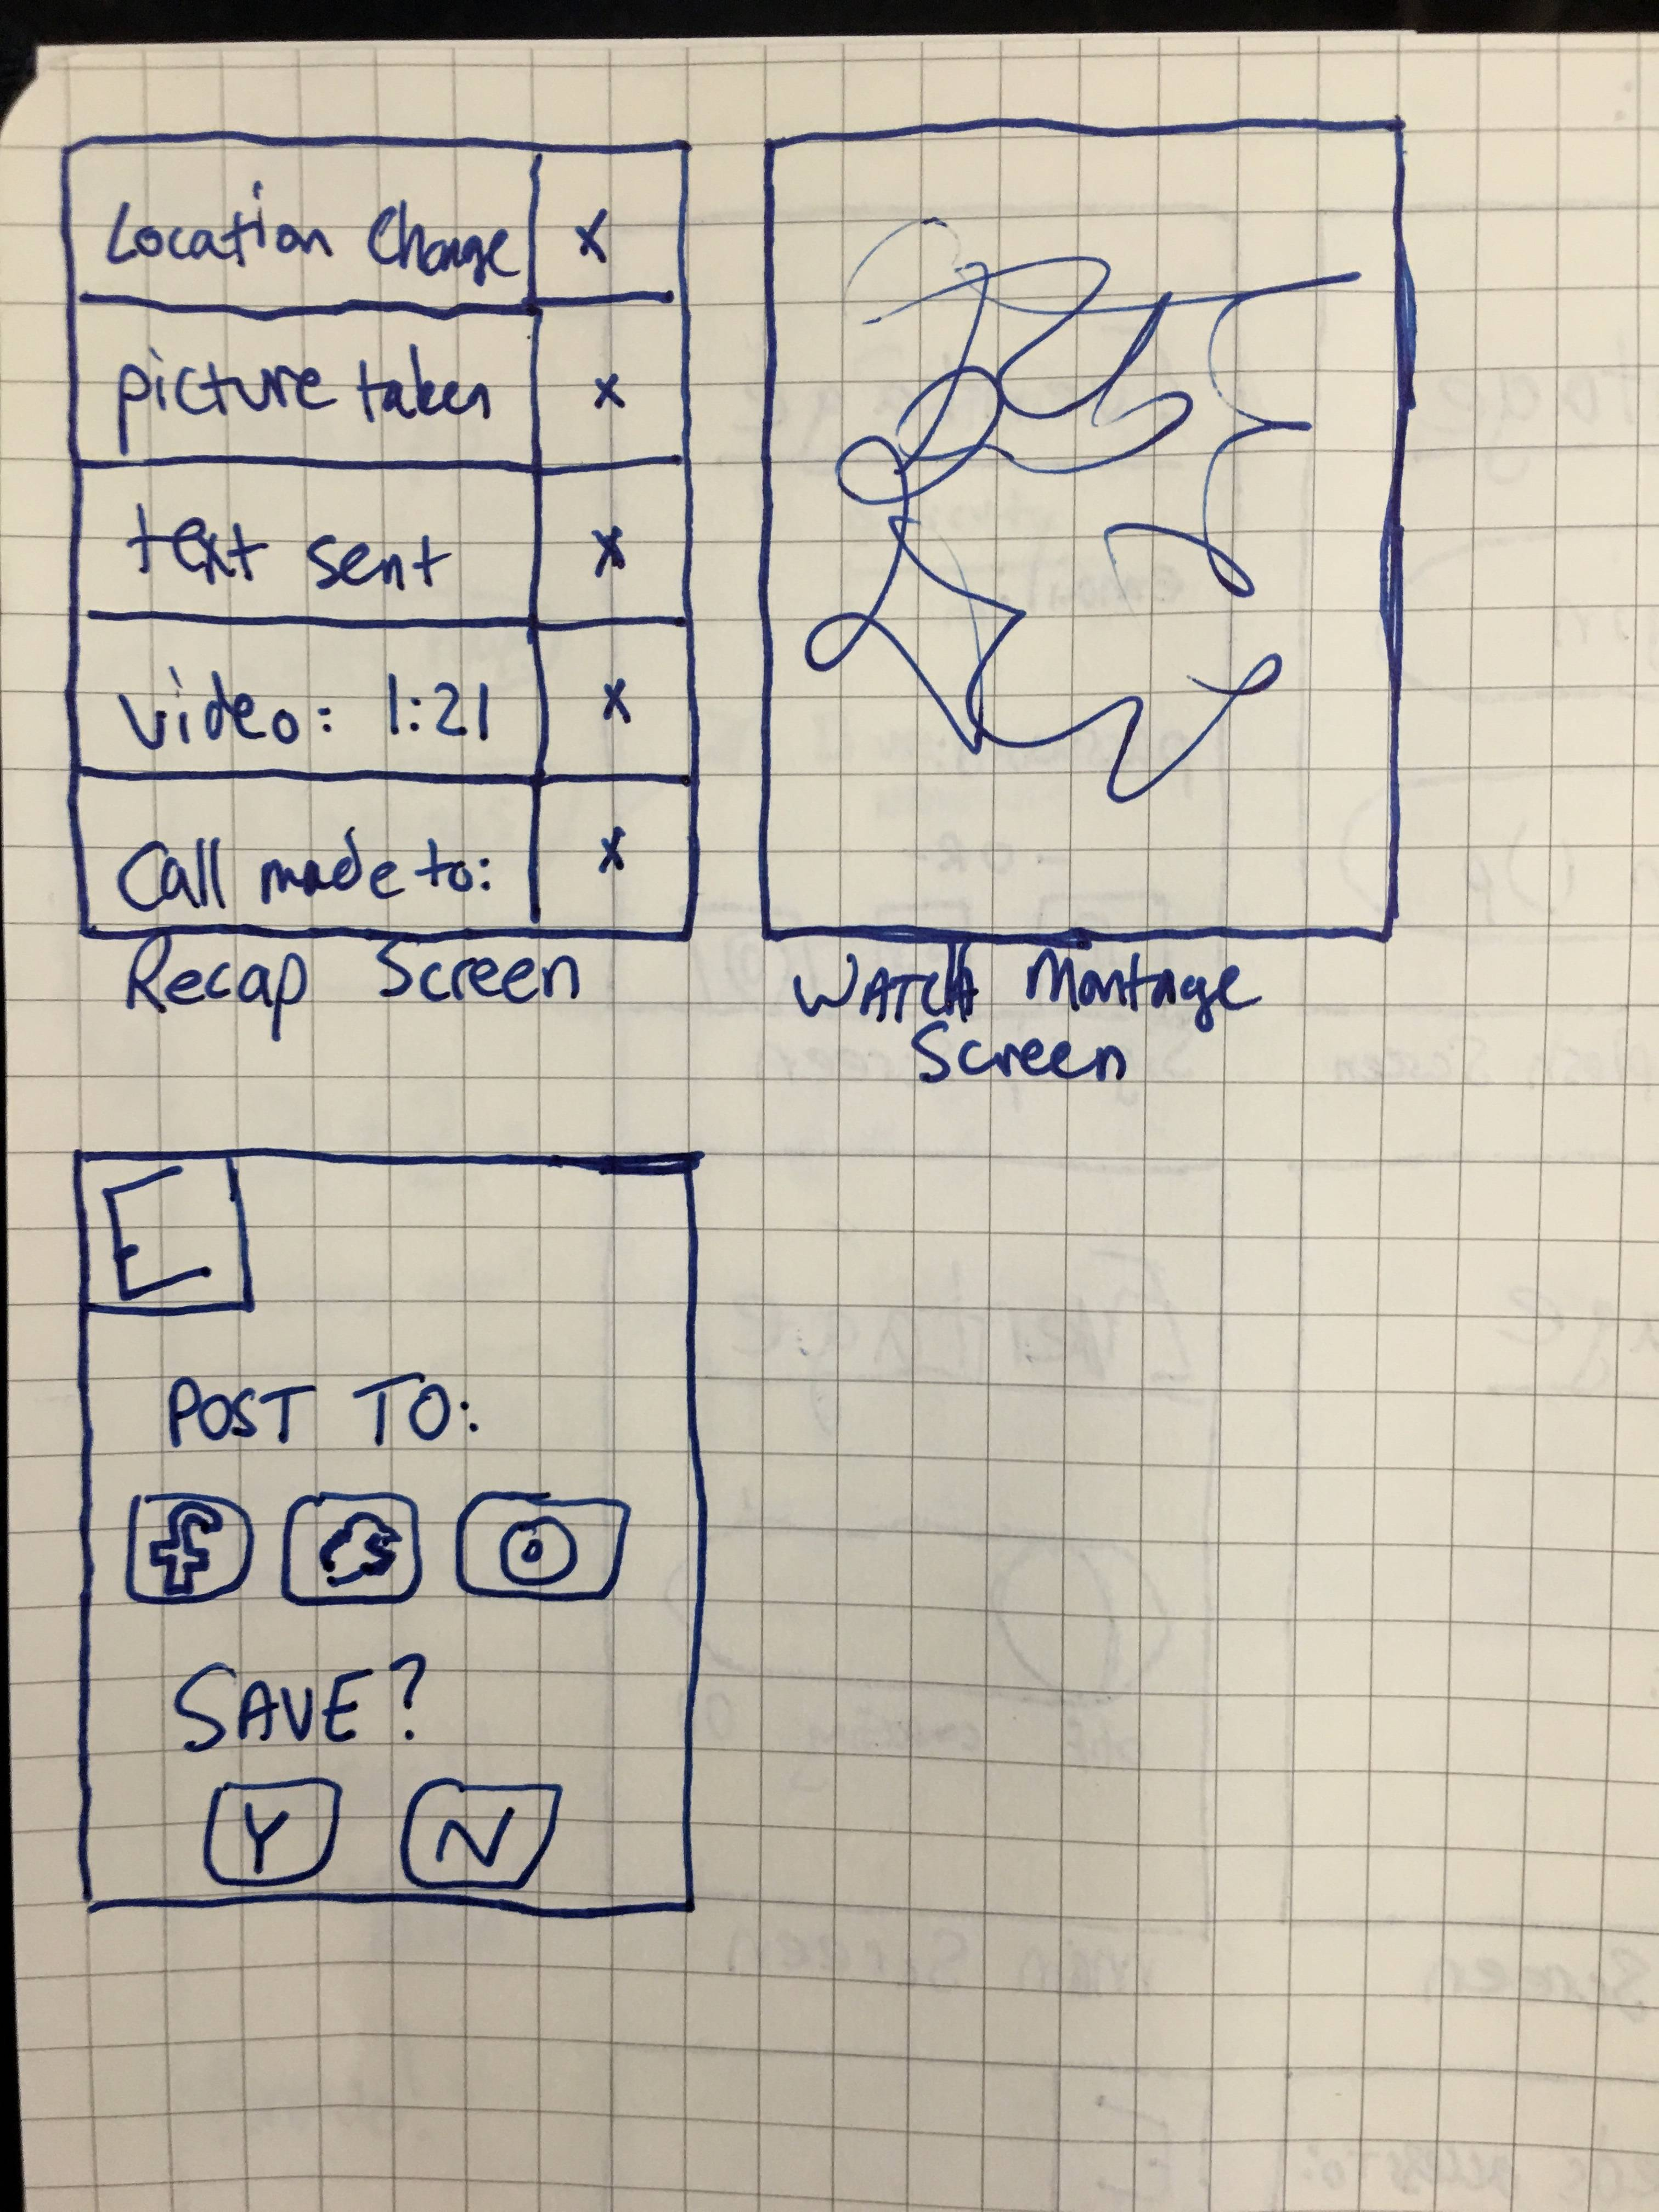 Location Change x
picture taken x
text sent x
video: 1:21 x
Call made to: x
Recap Screen
WATCH Montage
Screen
E
POST TO:
f
SAVE?
Y N